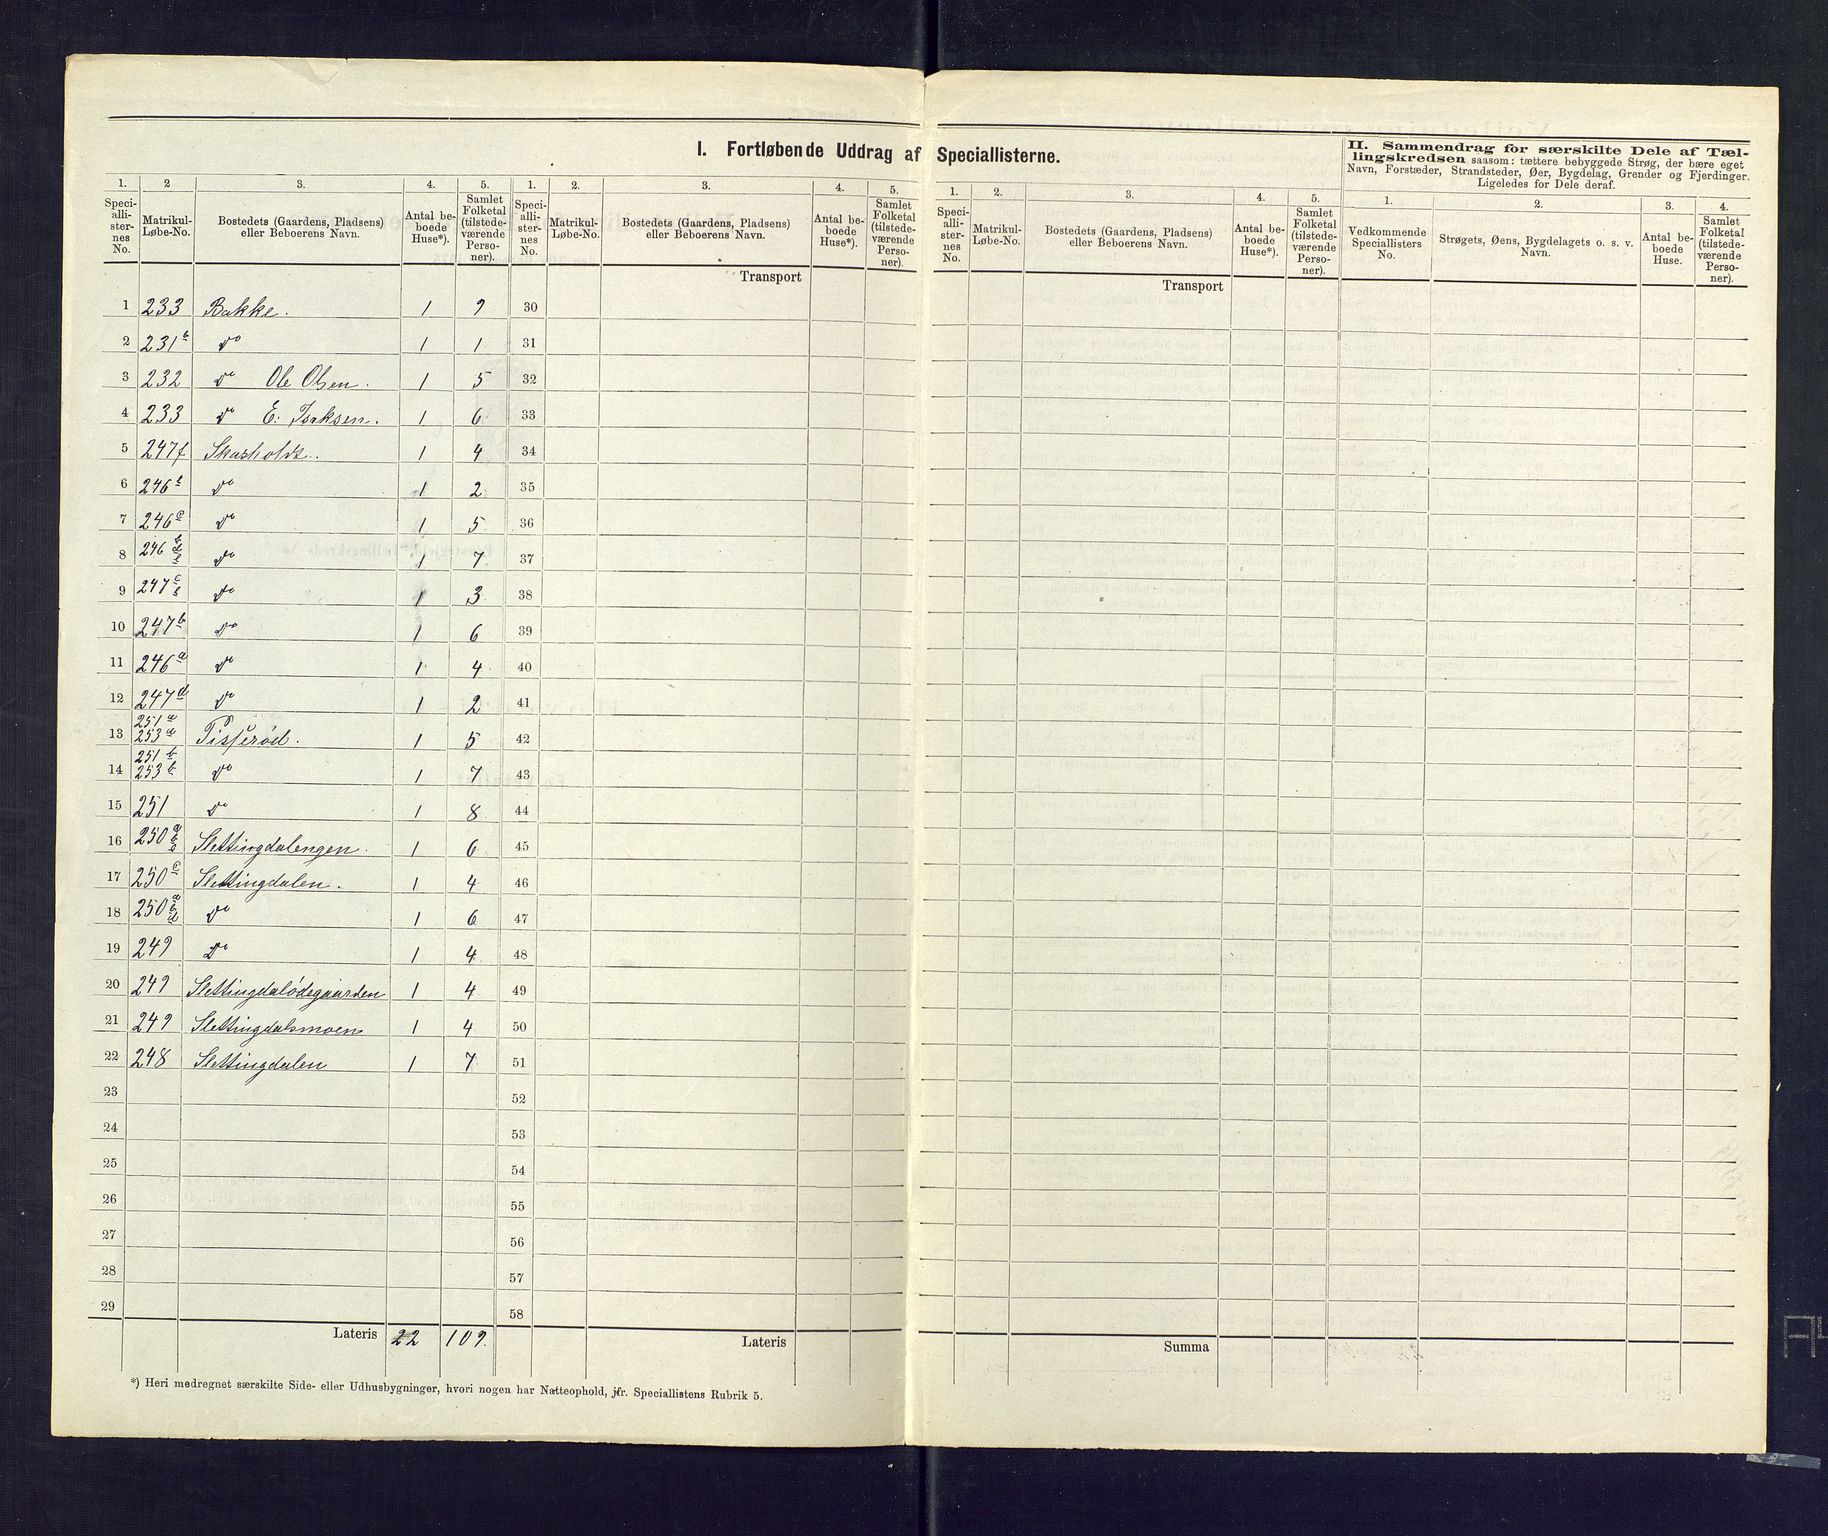 I. Fortløbende Uddrag af Speciallisterne.
II. Sammendrag for særskilte Dele af Tællingskredsen saasom: tættere bebyggede Strøg, der bære eget Navn, Forstæder, Strandsteder, Øer, Bygdelag, Grender og Fjerdinger. Ligeledes for Dele deraf.
1. 2 3. 4. 5. 1. 2. 3. 4. 5. 1. 2. 3. 4. 5. 1. 2. 3. 4.
Speciallisternes No. Matrikul-Løbe-No. Bostedets (Gaardens, Pladsens) eller Beboerens Navn. Antal beboede Huse*). Samlet Folketal (tilstedeværende Personer).
Speciallisternes No. Matrikul-Løbe-No. Bostedets (Gaardens, Pladsens) eller Beboerens Navn. Antal beboede Huse*). Samlet Folketal (tilstedeværende Personer).
Speciallisternes No. Matrikul-Løbe-No. Bostedets (Gaardens, Pladsens) eller Beboerens Navn. Antal beboede Huse*). Samlet Folketal (tilstedeværende Personer).
Vedkommende Speciallisters No. Strøgets, Øens, Bygdelagets o. s. v. Navn. Antal beboede Huse. Samlet Folketal (tilstedeværende Personer).
Transport Transport
1 233 Bakke. 1 9 30
2 231b Do 1 1 31
3 232 Do Ole Olsen. 1 5 32
4 233 Do E. Isaksen. 1 6 33
5 247f Skusholdt. 1 4 34
6 246b Do 1 2 35
7 246c Do 1 5 36
8 246 Do 1 7 37
9 247c e Do 1 3 38
10 247b Do 1 6 39
11 246a Do 1 4 40
12 247d Do 1 2 41
13 251a 253a Tisserød. 1 5 42
14 251b 253b Do 1 7 43
15 251 Do 1 8 44
16 250a b e Slettingdalengen. 1 6 45
17 250c Slettingdalen. 1 4 46
18 250 Do 1 6 47
19 249 Do 1 4 48
20 249 Slettingdalödegaarden 1 4 49
21 249 Slettingdalsmoen 1 4 50
22 248 Slettingdalen 1 7 51
23 52
24 53
25 54
26 55
27 56
28 57
29 58
Lateris 22 109. Lateris Summa
*) Heri medregnet særskilte Side- eller Udhusbygninger, hvori nogen har Natteophold, jfr. Speciallistens Rubrik 5.